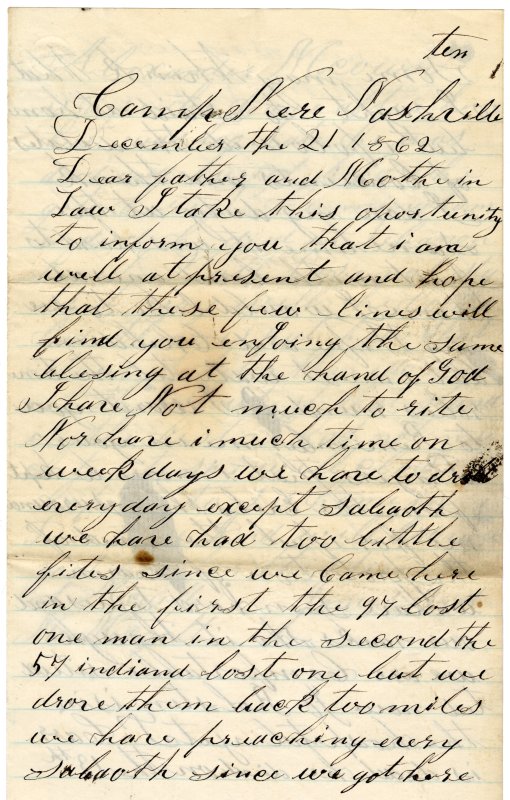 ten
Camp Nere Nashville
December the 21 1862
Dear father and Mothe in
Law I take this oportunity
to inform you that i am
well at present and hope
that these few lines will
find you enjoing the same
blesing at the hand of God
I have Not much to rite
Nor have i much time on
week days we have to dril
everyday except sabaoth
we have had too little
fites since we Came here
in the first the 97 lost
one man in the second the
57 indiand lost one but we
drove them back too miles
we have preaching every
sabaoth since we got here